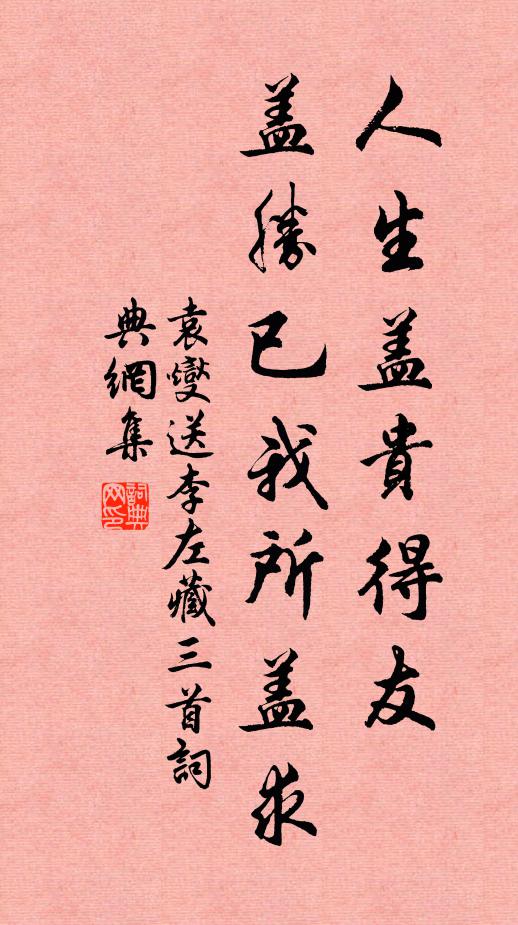 人生盖貴得友
盖勝已我所盖求
袁燮送李左藏三首詞
典網集
詞典
网印